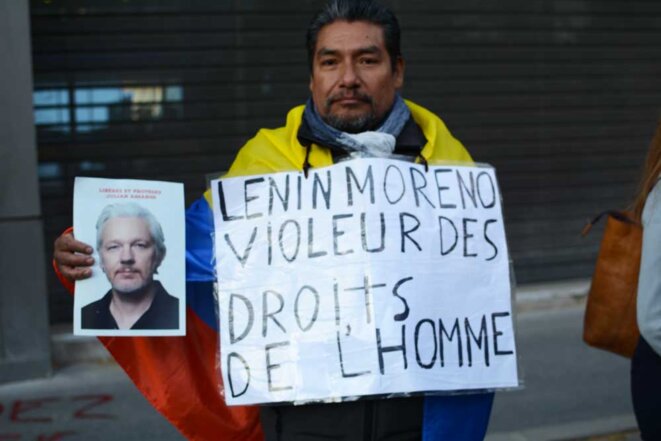 LIBÉREZ ET PROTÉGEZ
JULIAN ASSANGE
LENIN MORENO
VIOLEUR DES
DROITS
DE L'HOMME